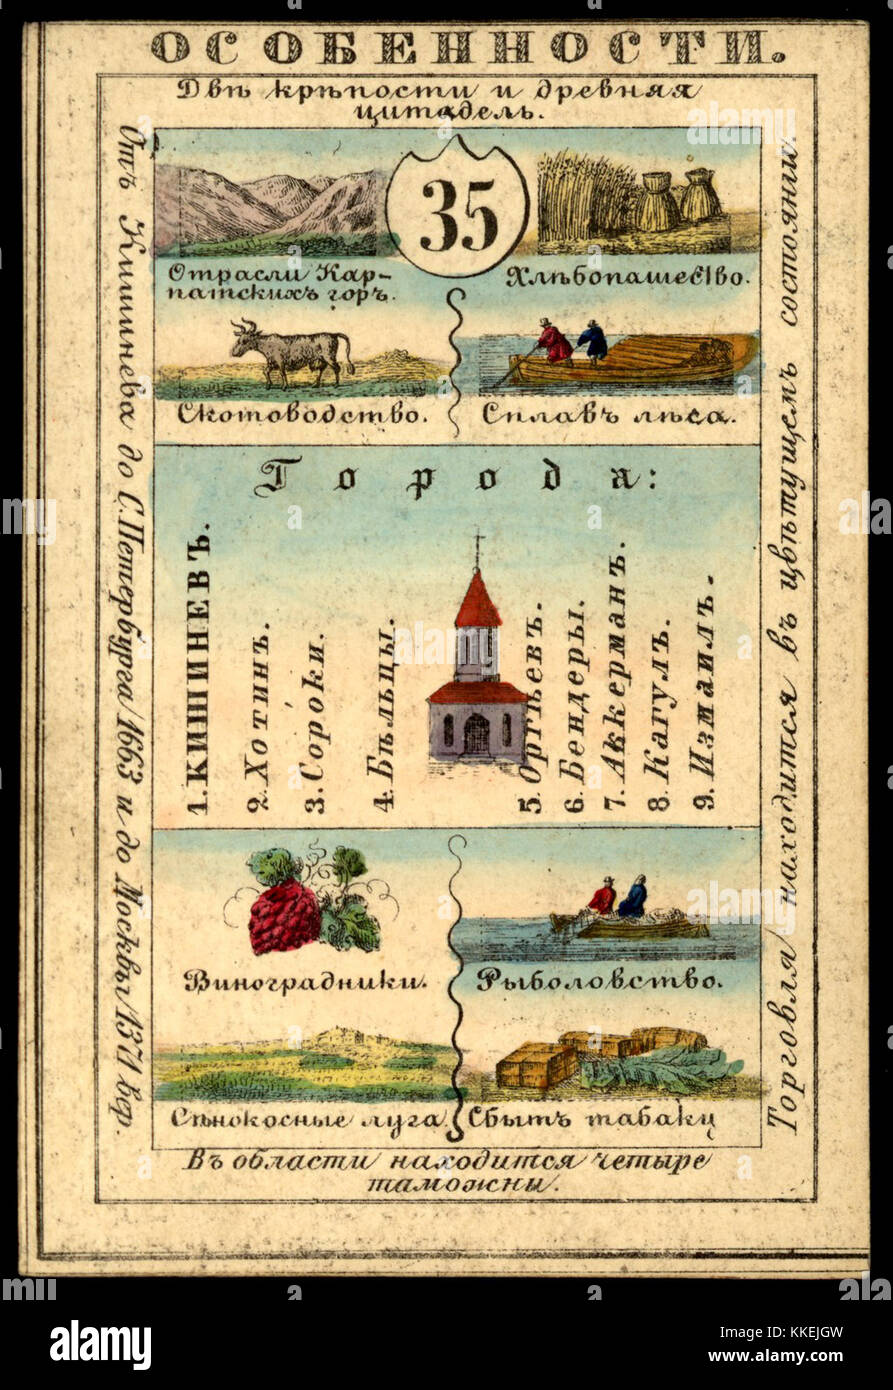 ОСОБЕННОСТИ.
Двѣ крѣпости и древняя
цитадель.
Отъ Кишинева до С.Петербурга 1663 и до Москвы 1371 вер.
35
Отрасли Кар-
патскихъ горъ.
Хлѣбопашество.
Скотоводство.
Сплавъ лѣса.
Города:
1. КИШИНЕВЪ.
2. Хотинъ.
3. Сороки.
4. Бѣльцы.
5. Оргѣевъ.
6. Бендеры.
7. Аккерманъ.
8. Кагулъ.
9. Измаилъ.
Виноградники.
Рыболовство.
Сѣнокосные луга.
Сбытъ табаку
Торговля находится въ цвѣтущемъ состоянии.
Въ области находится четыре
таможни.
alamy
alamy stock photo
KKEJGW
www.alamy.com